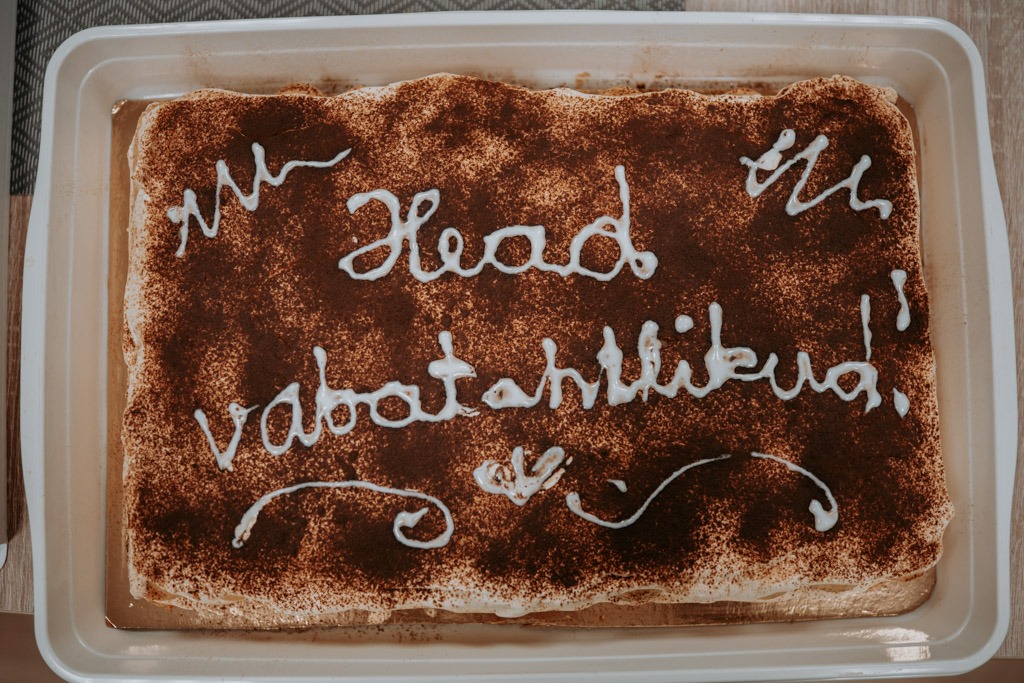 Head
vabatahtlikud!